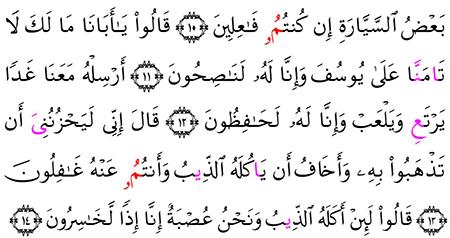 بَعۡضُ اَ۬لسَّيَّارَةِ إِن كُنتُمُۥ فَٰعِلِينَۖ ۝١٠ قَالُواْ يَٰأَبَانَا مَا لَكَ لَا
تَا۬مَنَّا عَلَىٰ يُوسُفَ وَإِنَّا لَهُۥ لَنَٰصِحُونَۖ ۝١١ أَرۡسِلۡهُ مَعَنَا غَدٗا
يَرۡتَعِ وَيَلۡعَبۡ وَإِنَّا لَهُۥ لَحَٰفِظُونَۖ ۝١٢ قَالَ إِنِّي لَيَحۡزُنُنِيَ أَن
تَذۡهَبُواْ بِهِۦ وَأَخَافُ أَن يَاكُلَهُ اُ۬لذِّيبُ وَأَنتُمُۥ عَنۡهُ غَٰفِلُونَۖ
۝١٣ قَالُواْ لَئِنۡ أَكَلَهُ اُ۬لذِّيبُ وَنَحۡنُ عُصۡبَةٌ إِنَّا إِذٗا لَّخَٰسِرُونَۖ ۝١٤